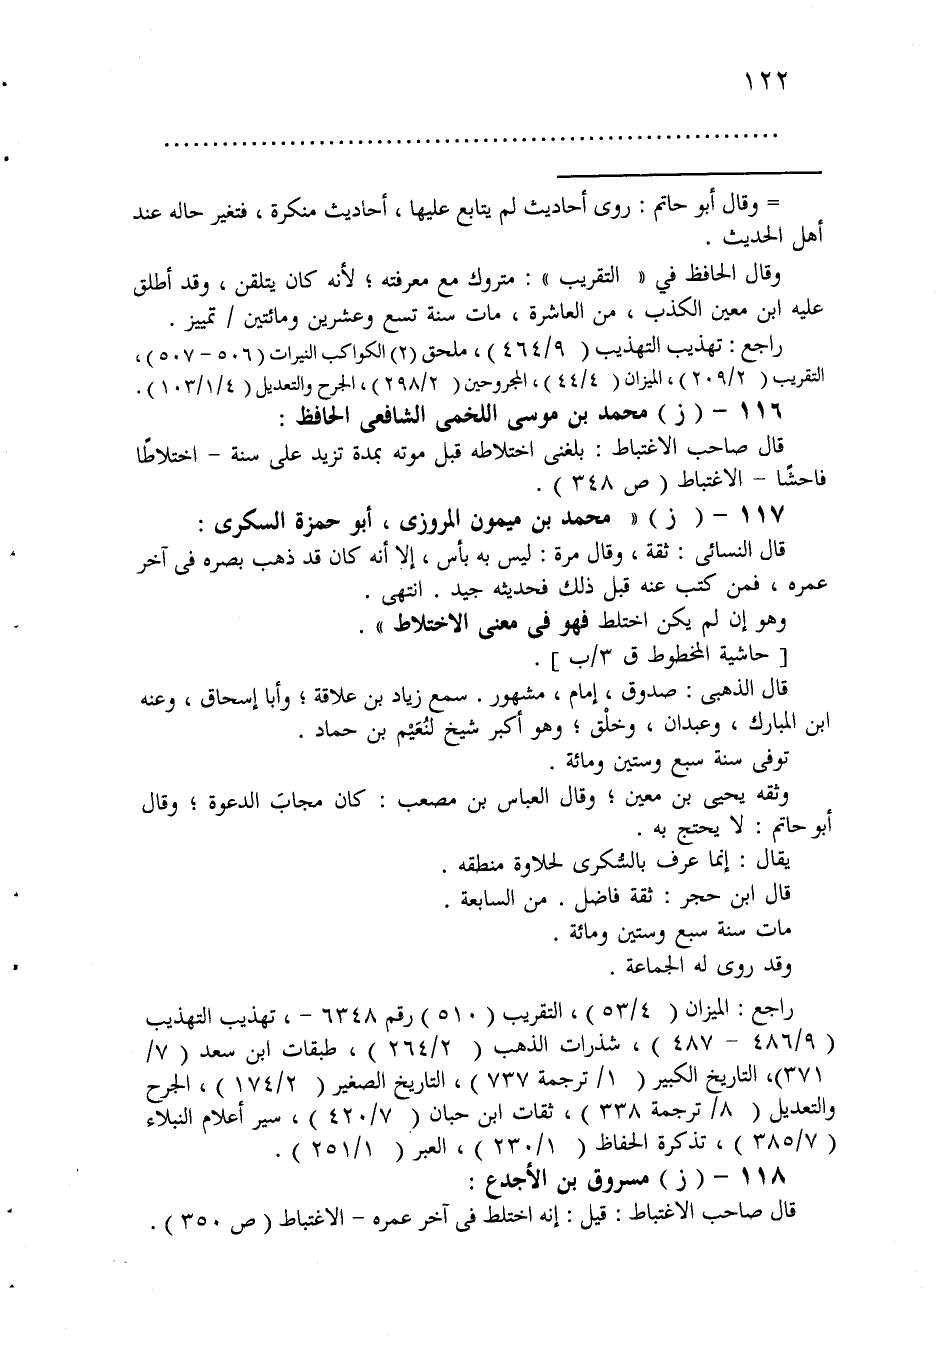 ١٢٢
................................................................
= وقال أبو حاتم : روى أحاديث لم يتابع عليها ، أحاديث منكرة ، فتغير حاله عند
أهل الحديث .
وقال الحافظ في « التقريب » : متروك مع معرفته ؛ لأنه كان يتلقن ، وقد أطلق
عليه ابن معين الكذب ، من العاشرة ، مات سنة تسع وعشرين ومائتين / تمييز .
راجع : تهذيب التهذيب ( ٤٦٤/٩ ) ، ملحق (٢) الكواكب النيرات (٥٠٦ – ٥٠٧) ،
التقريب ( ٢٠٩/٢ ) ، الميزان ( ٤٤/٤ ) ، المجروحين ( ٢٩٨/٢ ) ، الجرح والتعديل ( ١٠٣/١/٤ ) .
١١٦ – ( ز ) محمد بن موسى اللخمى الشافعى الحافظ :
قال صاحب الاغتباط : بلغنى اختلاطه قبل موته بمدة تزيد على سنة – اختلاطًا
فاحشًا – الاغتباط ( ص ٣٤٨ ) .
١١٧ – ( ز ) « محمد بن ميمون المروزى ، أبو حمزة السكرى :
قال النسائى : ثقة ، وقال مرة : ليس به بأس ، إلا أنه كان قد ذهب بصره فى آخر
عمره ، فمن كتب عنه قبل ذلك فحديثه جيد . انتهى .
وهو إن لم يكن اختلط فهو فى معنى الاختلاط » .
[ حاشية المخطوط ق ٣/ب ] .
قال الذهبى : صدوق ، إمام ، مشهور . سمع زياد بن علاقة ؛ وأبا إسحاق ، وعنه
ابن المبارك ، وعبدان ، وخلْق ؛ وهو أكبر شيخ لنُعَيْم بن حماد .
توفى سنة سبع وستين ومائة .
وثقه يحيى بن معين ؛ وقال العباس بن مصعب : كان مجابَ الدعوة ؛ وقال
أبو حاتم : لا يحتج به .
يقال : إنما عرف بالسُكرى لحلاوة منطقه .
قال ابن حجر : ثقة فاضل . من السابعة .
مات سنة سبع وستين ومائة .
وقد روى له الجماعة .
راجع : الميزان ( ٥٣/٤ ) ، التقريب ( ٥١٠ ) رقم ٦٣٤٨ – ، تهذيب التهذيب
( ٤٨٦/٩ – ٤٨٧ ) ، شذرات الذهب ( ٢٦٤/٢ ) ، طبقات ابن سعد ( ٧/
٣٧١) ، التاريخ الكبير ( ١/ ترجمة ٧٣٧ ) ، التاريخ الصغير ( ١٧٤/٢ ) ، الجرح
والتعديل ( ٨/ ترجمة ٣٣٨ ) ، ثقات ابن حبان ( ٤٢٠/٧ ) ، سير أعلام النبلاء
( ٣٨٥/٧ ) ، تذكرة الحفاظ ( ٢٣٠/١ ) ، العبر ( ٢٥١/١ ) .
١١٨ – ( ز ) مسروق بن الأجدع :
قال صاحب الاغتباط : قيل : إنه اختلط فى آخر عمره – الاغتباط ( ص ٣٥٠ ) .